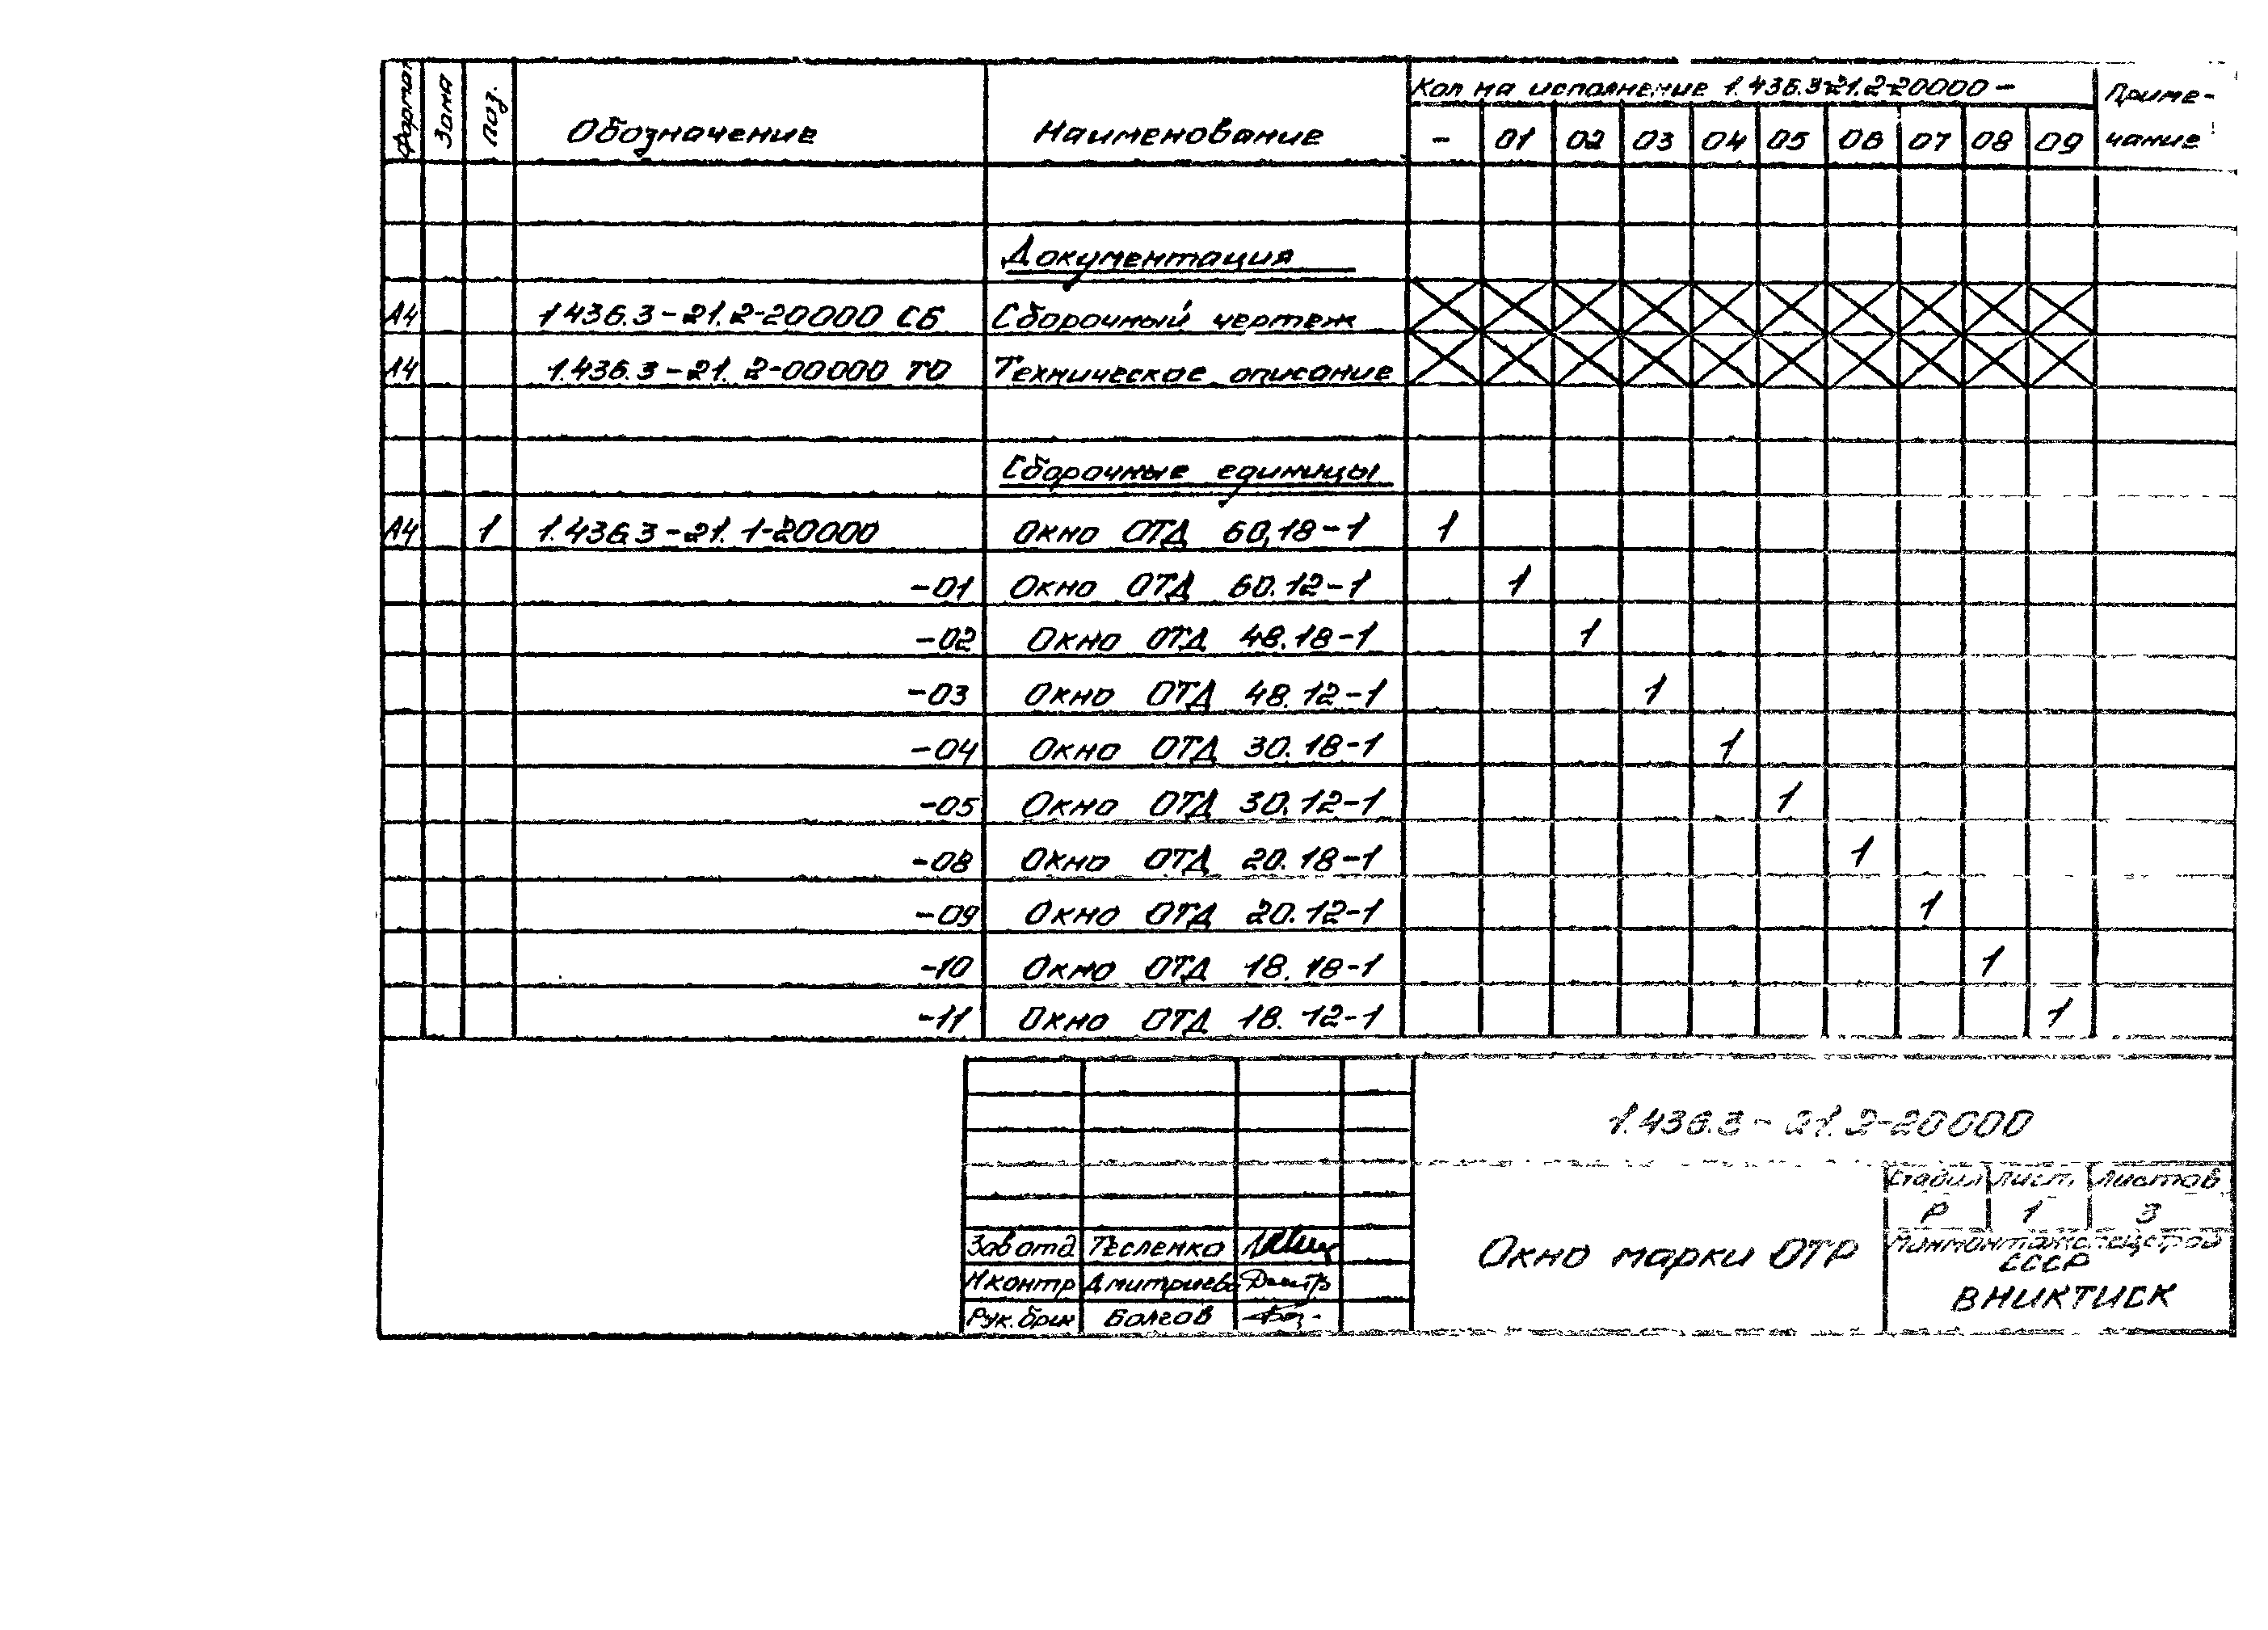 Формат Зона Поз. Обозначение Наименование Кол на исполнение 1.436.3-21.2-20000 - Приме-
- 01 02 03 04 05 06 07 08 09 чание
Документация
А4 1436.3-21.2-20000 СБ Сборочный чертеж
А4 1.436.3-21.2-00000 ТО Техническое описание
Сборочные единицы
А4 1 1.436.3-21.1-20000 Окно ОТД 60,18-1 1
-01 Окно ОТД 60.12-1 1
-02 Окно ОТД 48.18-1 1
-03 Окно ОТД 48.12-1 1
-04 Окно ОТД 30.18-1 1
-05 Окно ОТД 30.12-1 1
-08 Окно ОТД 20.18-1 1
-09 Окно ОТД 20.12-1 1
-10 Окно ОТД 18.18-1 1
-11 Окно ОТД 18.12-1 1
1.436.3-21.2-20000
Стадия Лист. Листов
Р 1 3
Зав отд Тесленко
Н контр Дмитриева
Рук. бриг Болгов
Окно марки ОТР
Минмонтажспецстрой
СССР
ВНИКТИСК